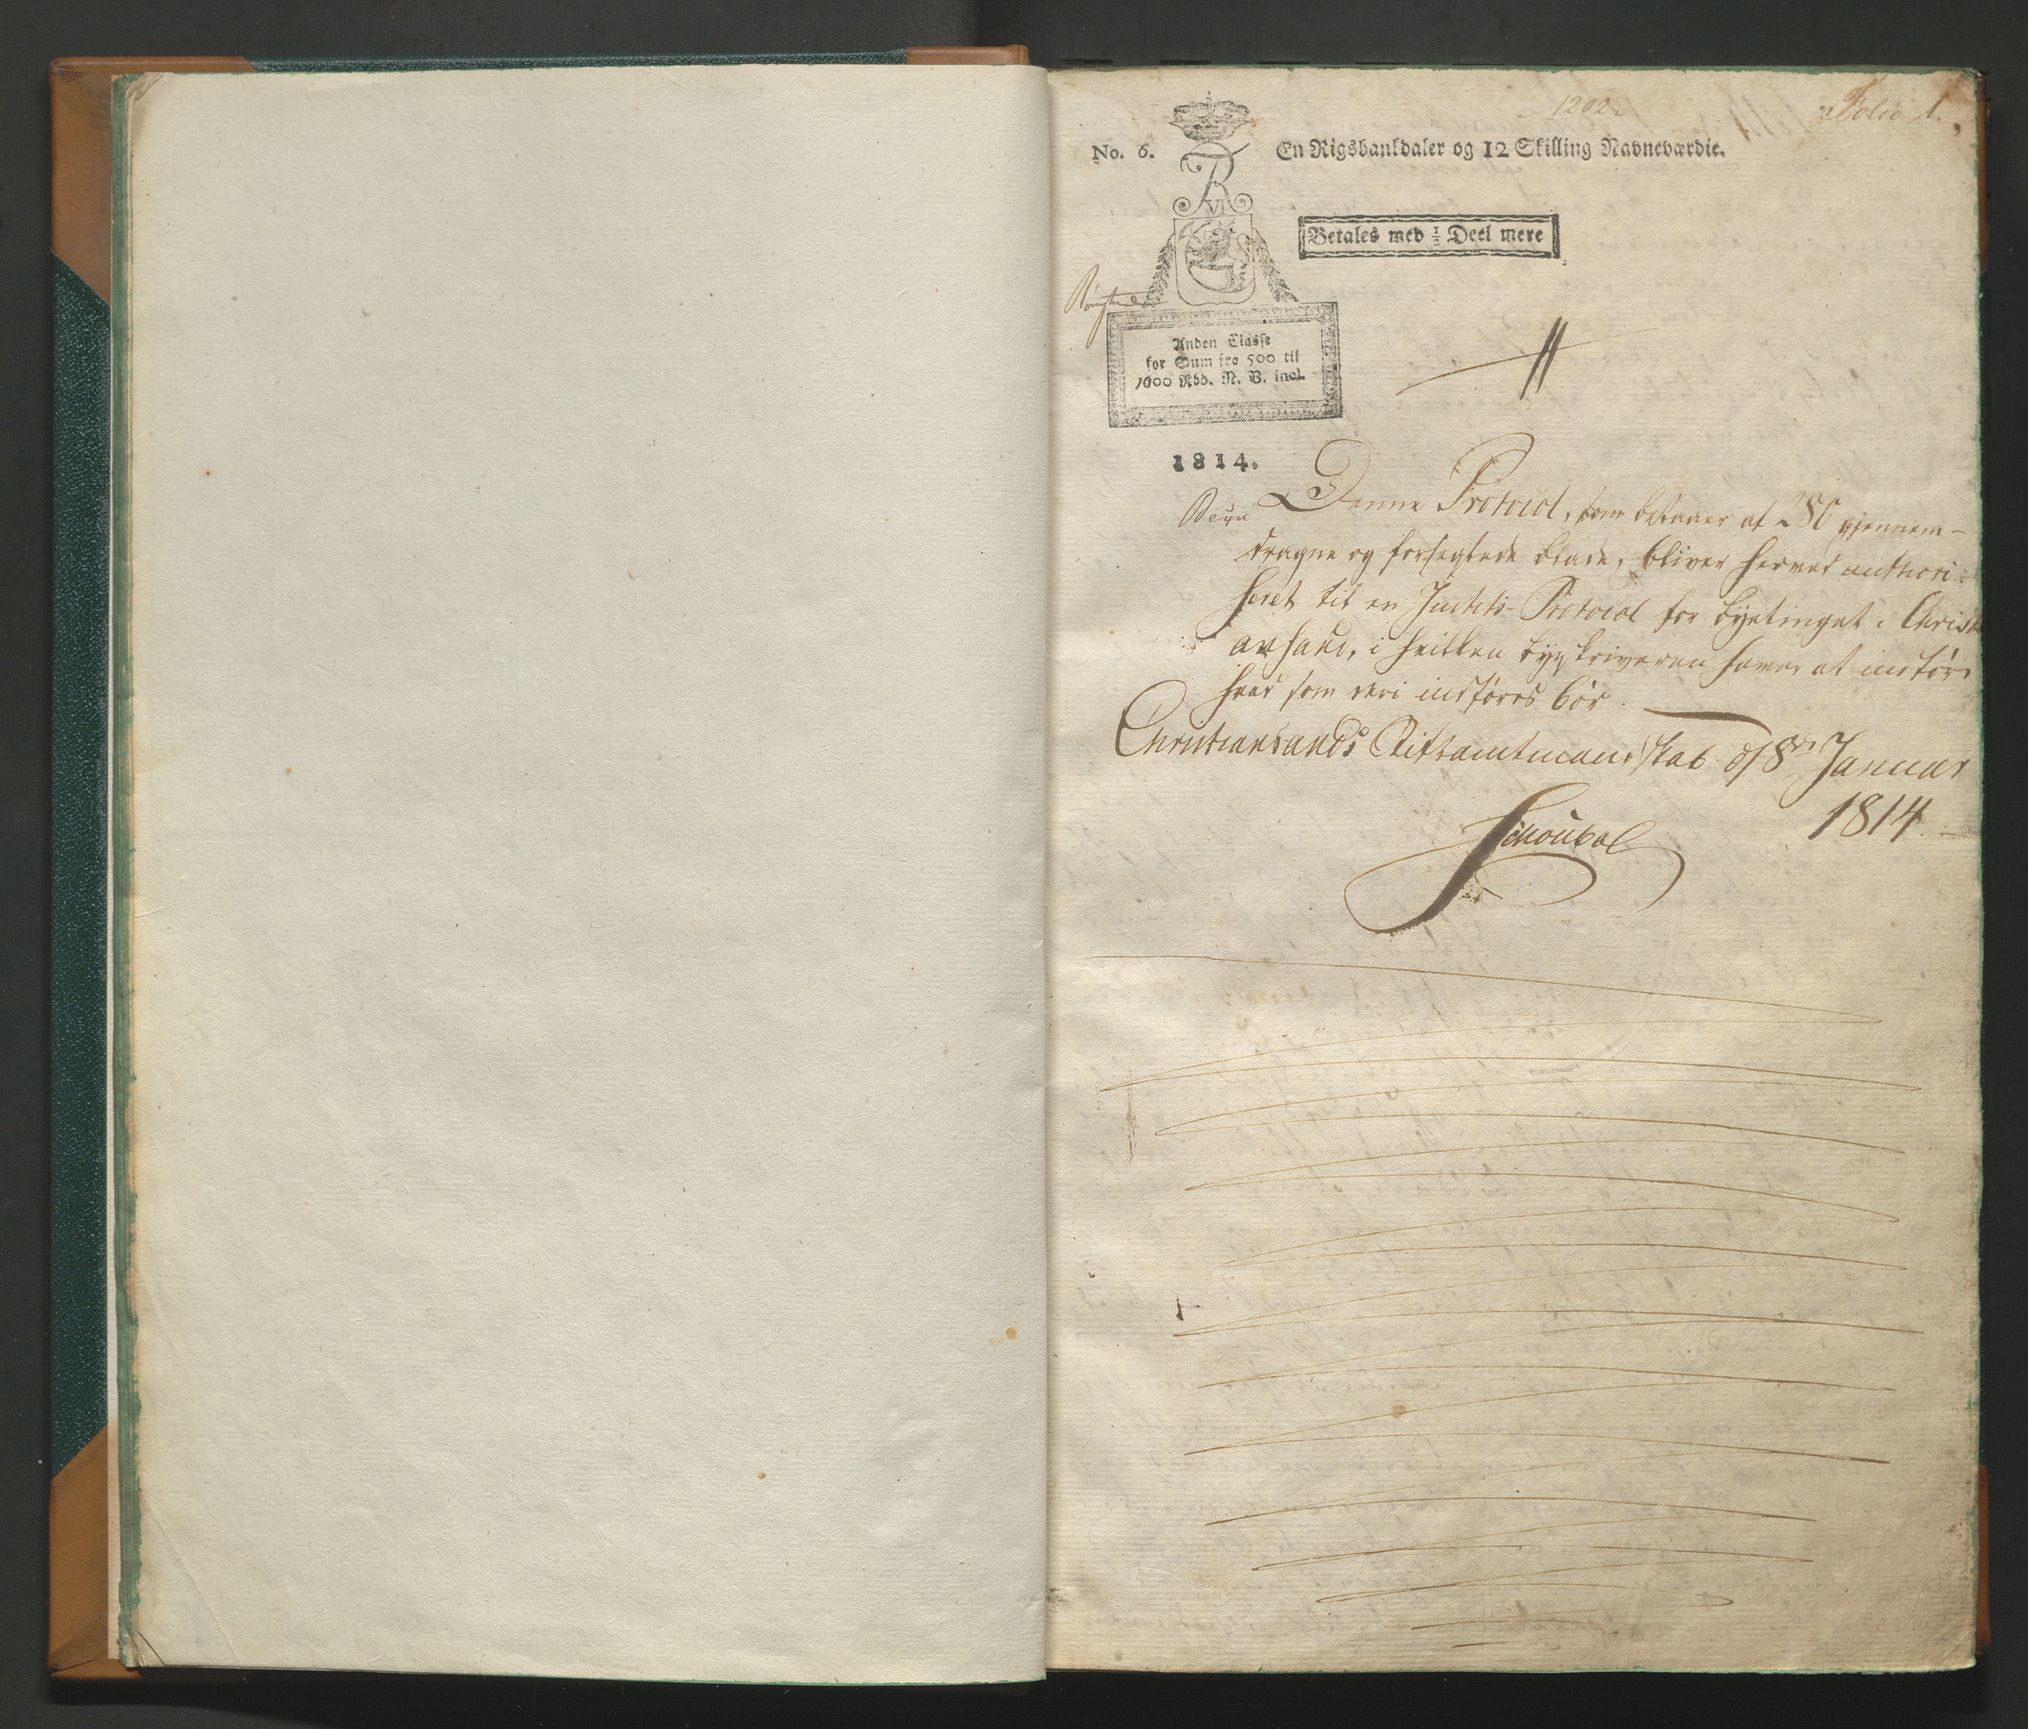 1202.
Folio 1.
No. 6.
En Rigsbankdaler og 12 Skilling Navneværdie.
Betales med 1/2 Deel mere
VI
Anden Classe
for Sum fra 500 til
1000 Rbd. N. V. incl.
1814.
Denne Protocol, som bestaaer af 280 gjennem-
dragne og forseglede blade, bliver herved authori-
seret til en Justits-Protocol for byetinget i Christi
ansand, i hvilken byeskriveren haver at indføre
hvad som deri indføres bør.
Christiansands Stiftamtmandskab d 8de Januar
1814.